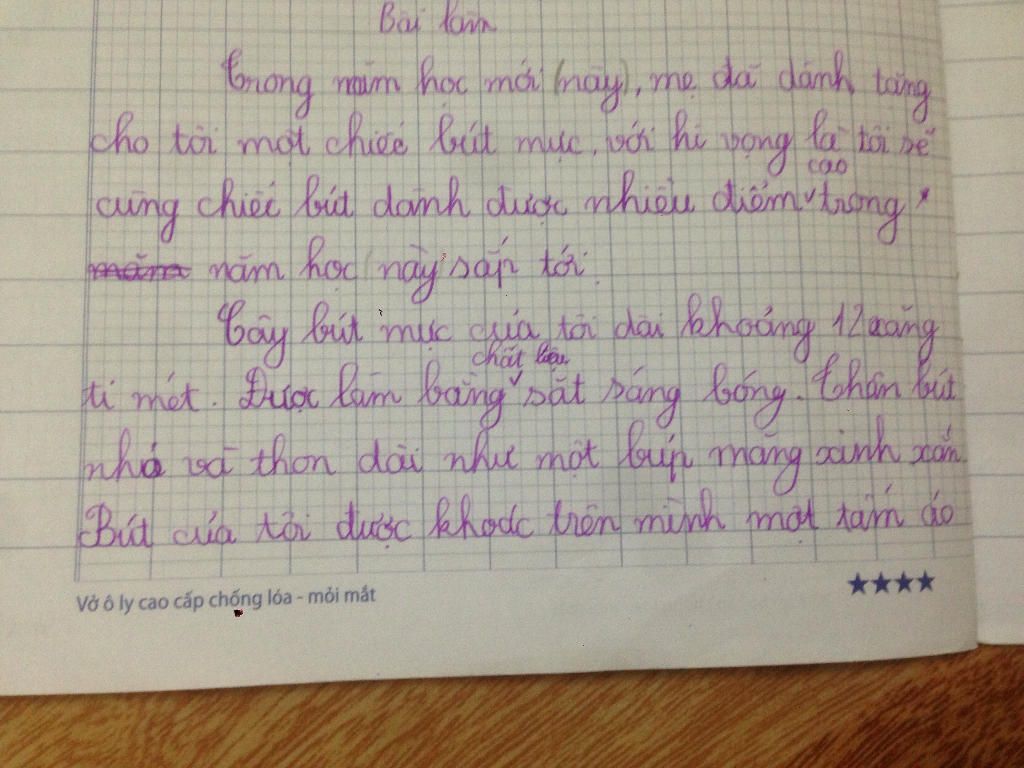 Bài làm
Trong năm học mới (này), mẹ đã dành tặng
cho tôi một chiếc bút mực, với hi vọng là tôi sẽ
cao
cùng chiếc bút dành được nhiều điểm trong
năm học này sắp tới.
Cây bút mực của tôi dài khoảng 12 xăng
chất liệu
ti mét. Được làm bằng sắt sáng bóng. Thân bút
nhỏ và thon dài như một búp măng xinh xắn.
Bút của tôi được khoác trên mình một tấm áo
Vở ô ly cao cấp chống lóa - mỏi mắt